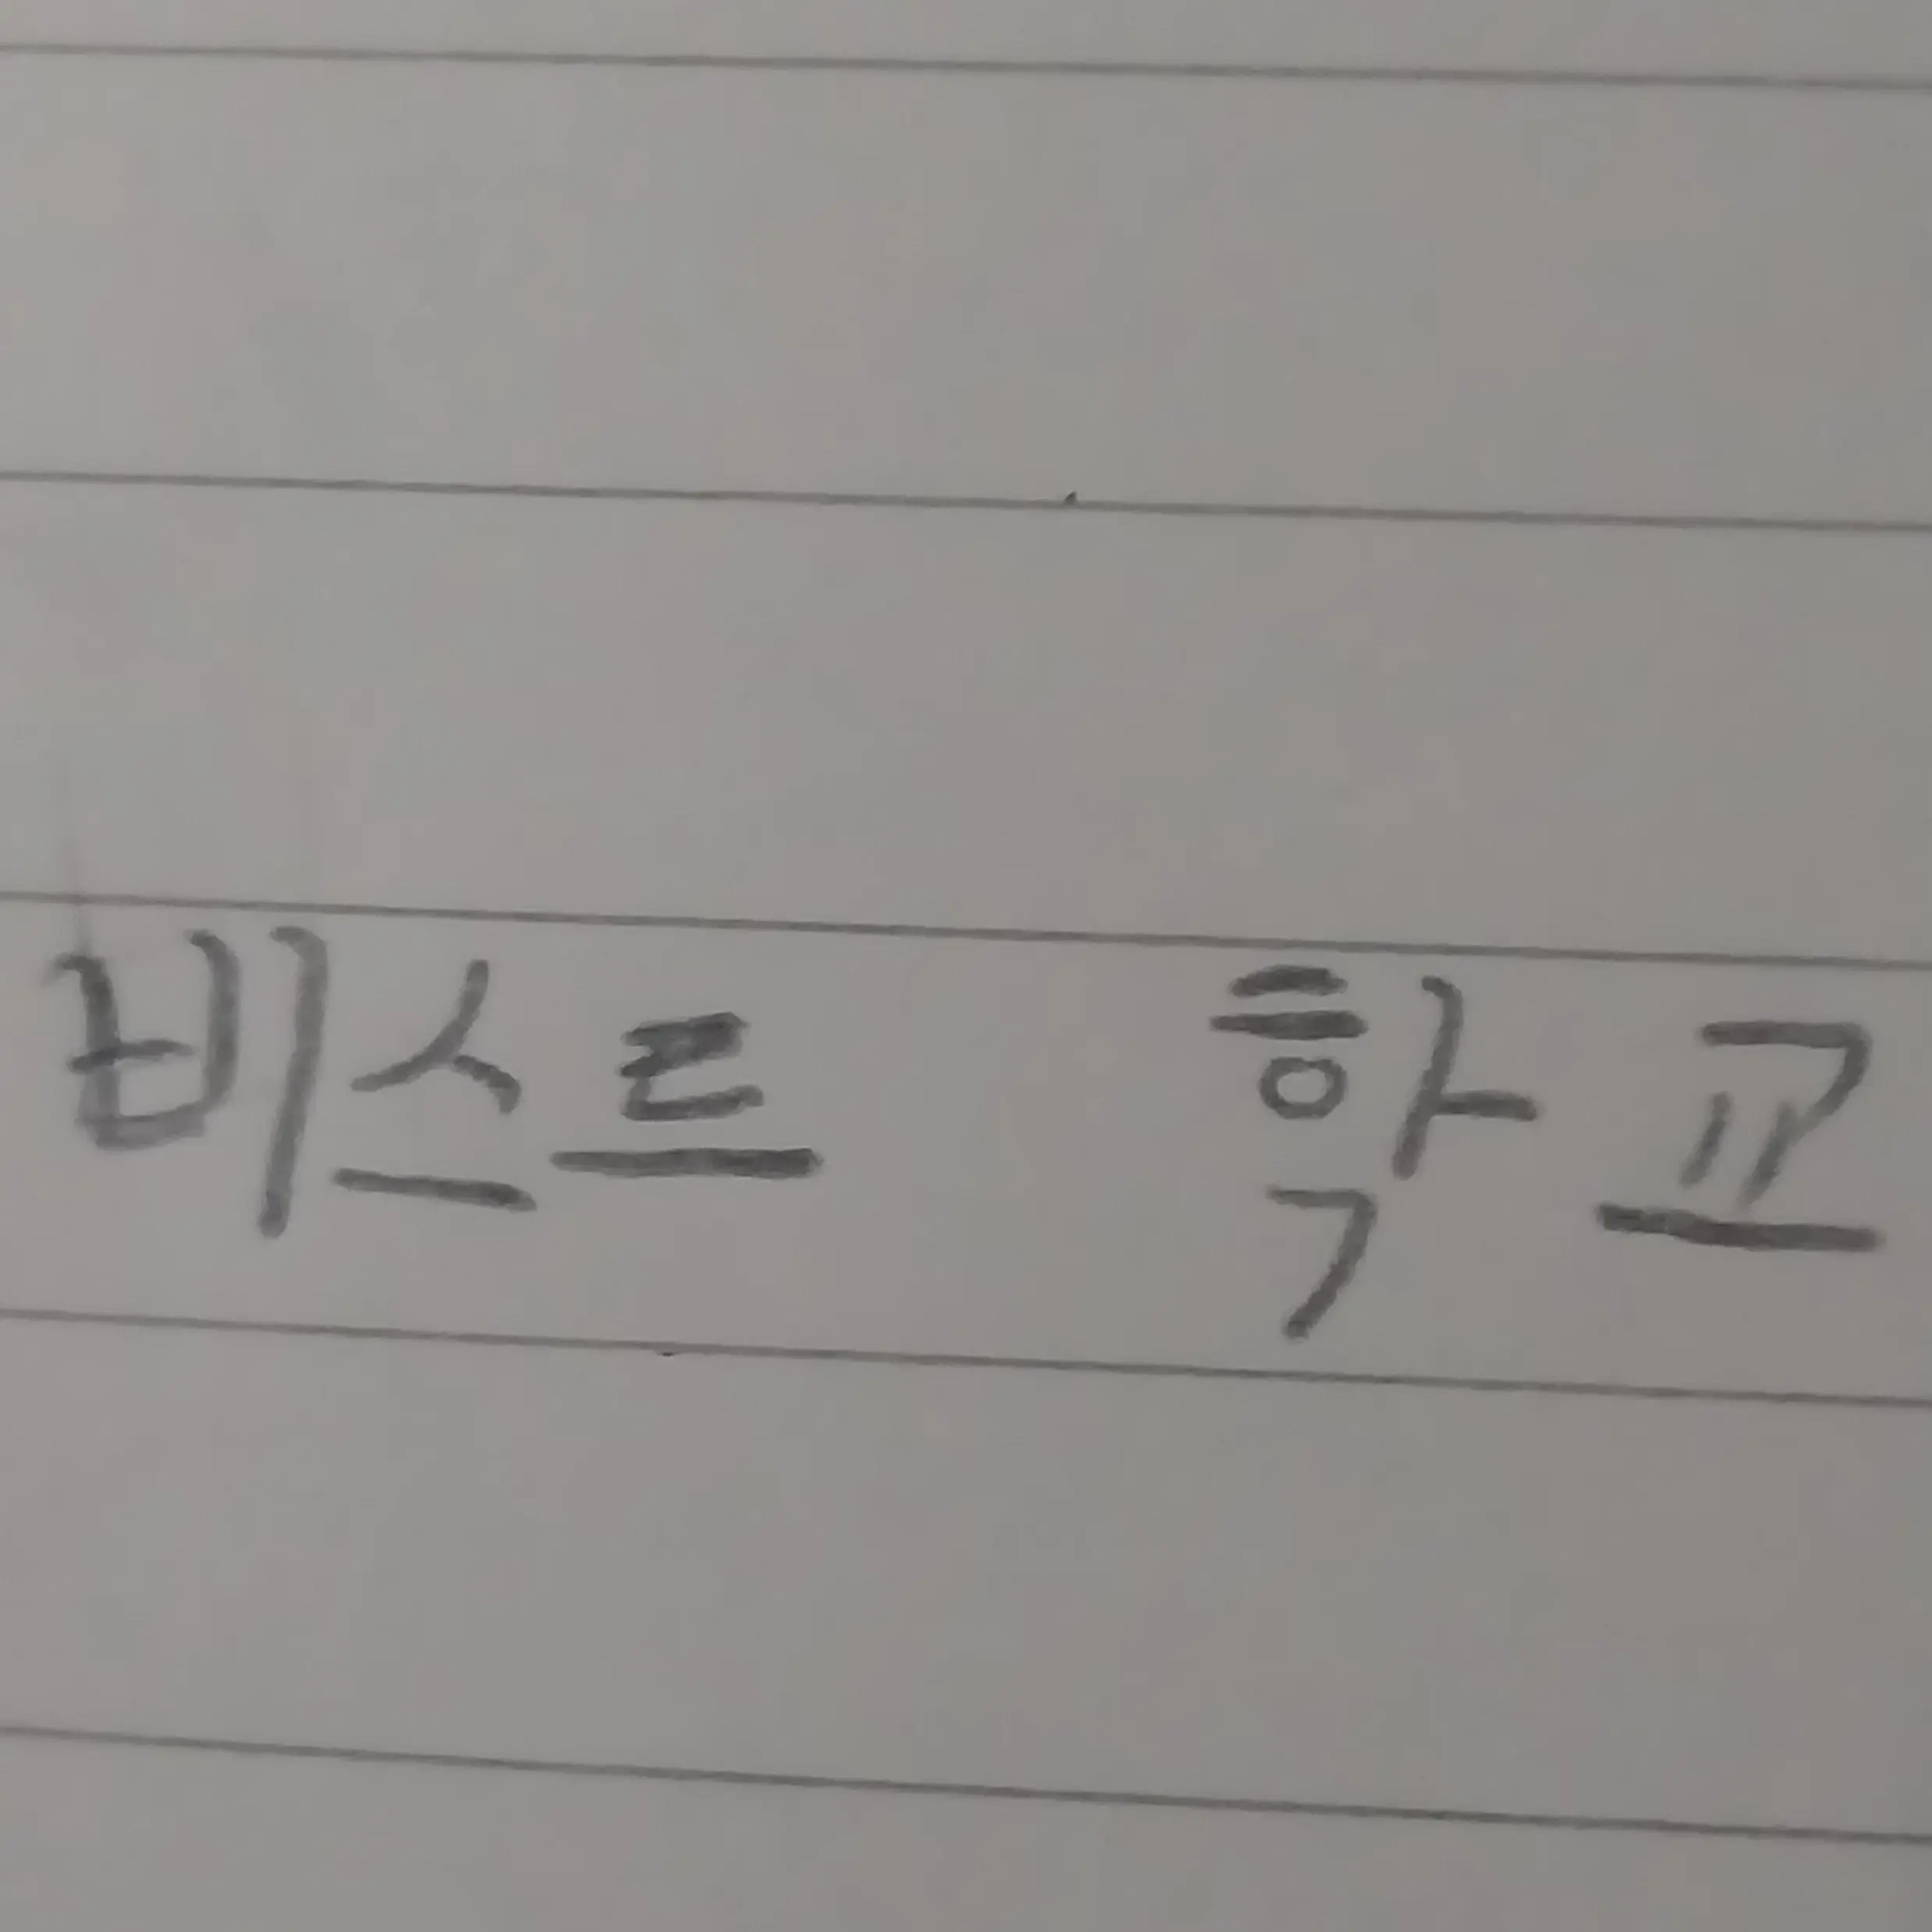 비스르 학교